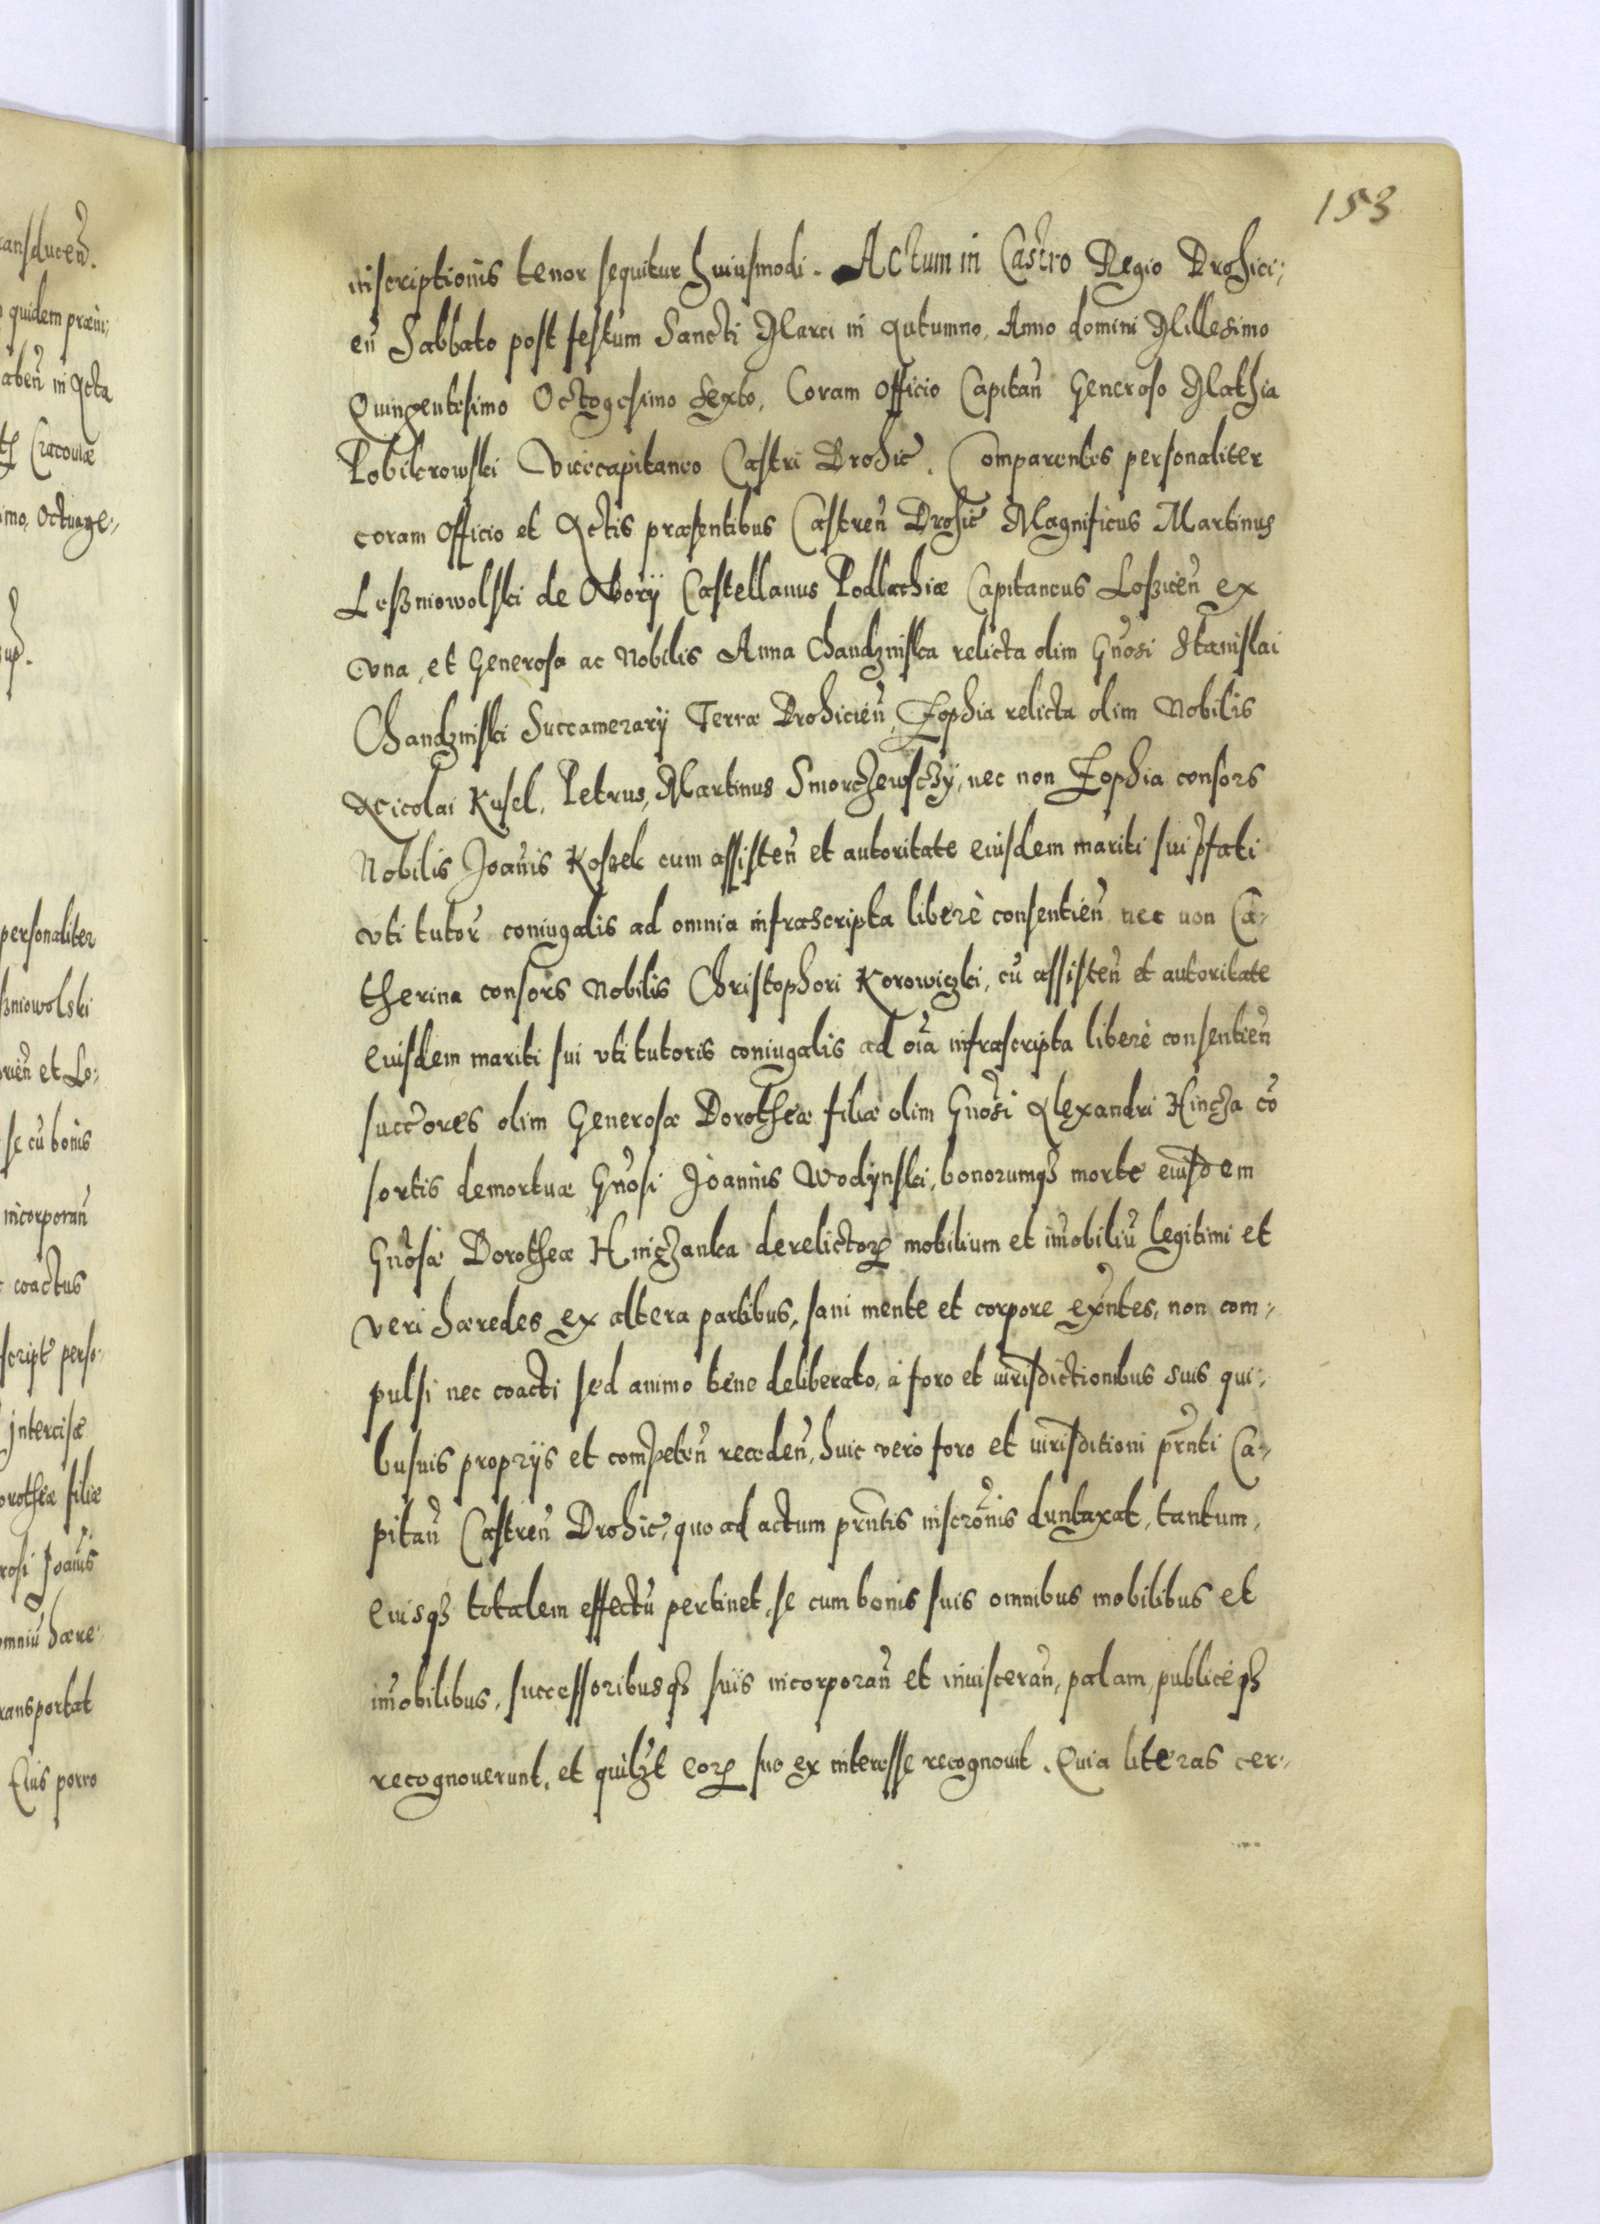 153
inscriptionis tenor sequitur huiusmodi. Actum in Castro Regio Drohici:
eñ Sabbato post festum Sancti Marci in Autumno, Anno domini Millesimo
Quingentesimo Octogesimo Sexto, Coram Officio Capitañ Generoso Mathia
Pobikrowski Vicecapitaneo Castri Drohic. Comparentes personaliter
coram Officio et Actis præsentibus Castreñ Drohic Magnificus Martinus
Leßniowolski de Obory Castellanus Podlachiæ Capitaneus Loßiceñ ex
vna, et Generosa ac Nobilis Anna Chandzinska relicta olim Gnosi Stanislai
Chandzinski Succamerarij Terræ Drohicieñ, Zophia relicta olim Nobilis
Nicolai Kusel, Petrus, Martinus Smorczewsczÿ, nec non Zophia consors
Nobilis Joañis Koszek cum assisteñ et autoritate eiusdem mariti sui pfati
vti tutor coniugalis ad omnia infrascripta liberè consentieñ nec non Ca-
therina consors Nobilis Christophori Korowiczki, cũ assisteñ et autoritate
eiusdem mariti sui vti tutoris coniugalis ad oĩa infrascripta liberè consentieñ
succores olim Generosæ Dorotheæ filiæ olim Gnosi Alexandri Hincza cõ
sortis demortuæ Gnosi Joannis Wodÿnski, bonorumqȝ morte eiusdem
Gnosæ Dorotheæ Hinczanka derelictoꝝ mobilium et im̃obiliũ legitimi et
veri hæredes ex altera partibus, sani mente et corpore exñtes, non com-
pulsi nec coacti sed animo bene deliberato, à foro et iurisdictionibus suis qui-
busuis proprijs et competeñ recedeñ, huic verò foro et iurisditioni prñti Ca-
pitañ Castreñ Drohic, quo ad actum prñtis inscronis duntaxat, tantum,
eiusqȝ totalem effectũ pertinet, se cum bonis suis omnibus mobilibus et
im̃obilibus, successoribusqȝ suis incorporañ et inuisceran̄, palam, publicèqȝ
recognouerunt, et quilȝt eoꝝ suo ex interesse recognouit. Quia literas cer-